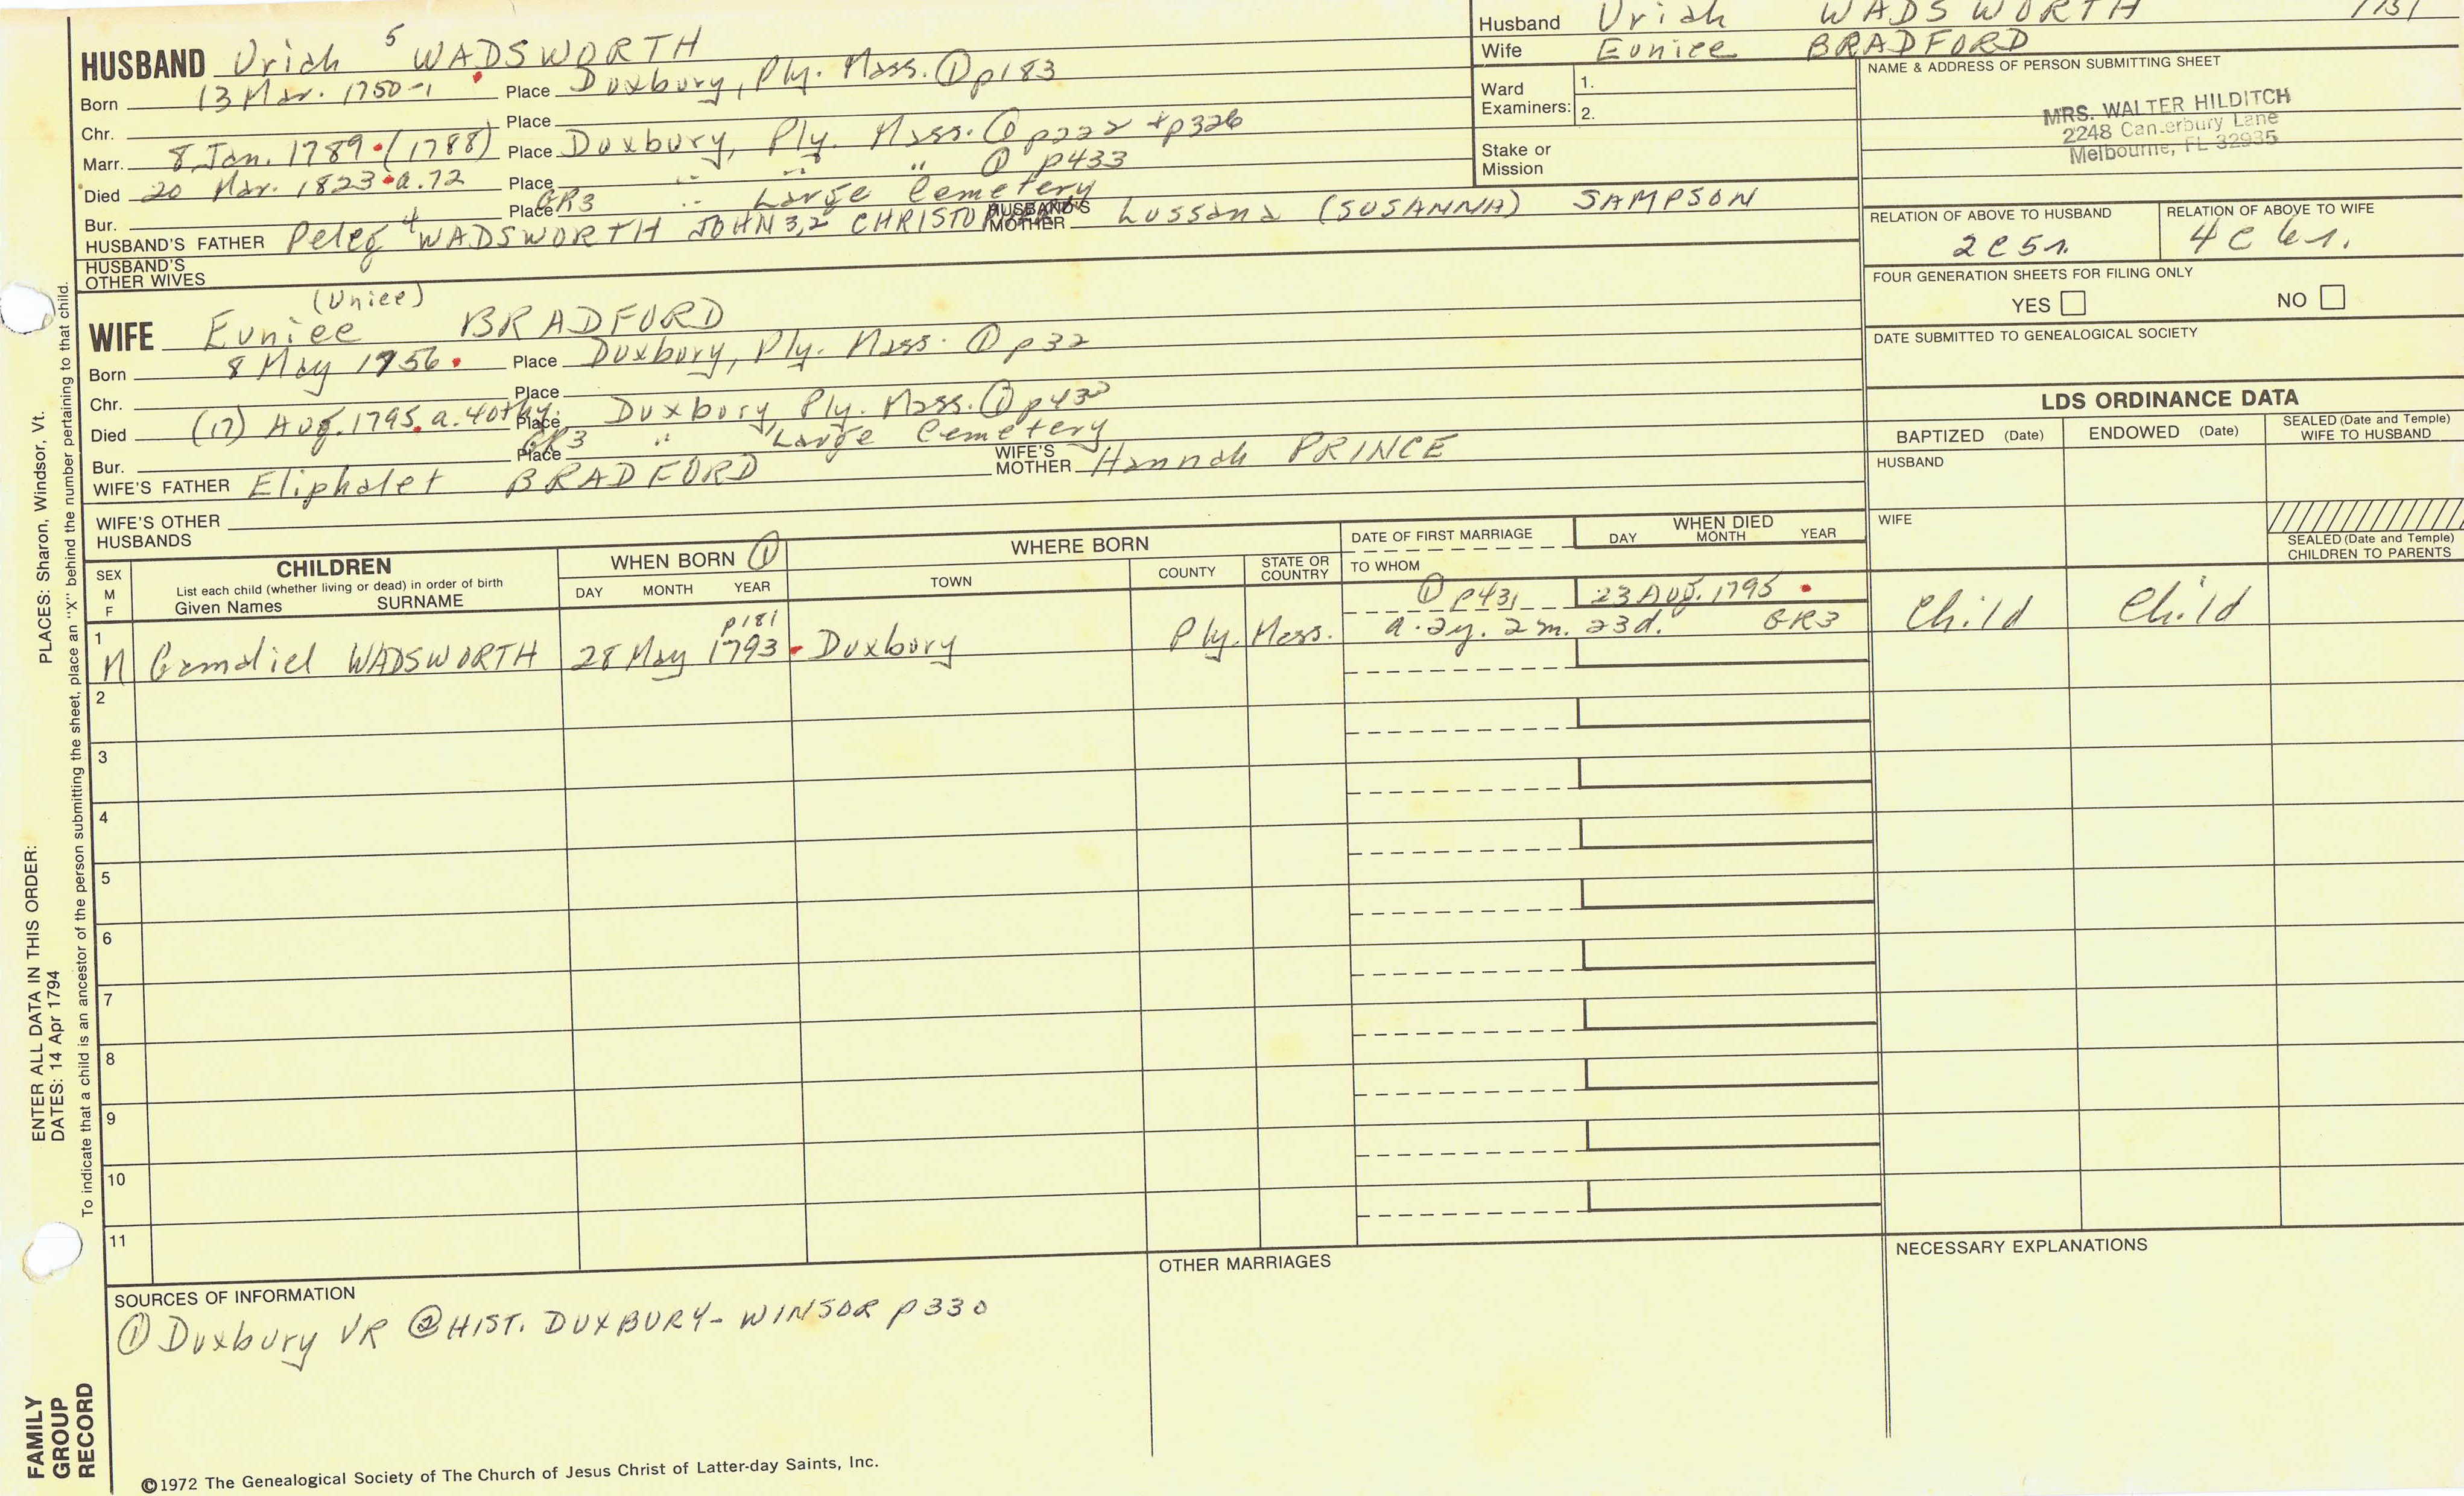 Husband Uriah WADSWORTH 1751
Wife Eunice BRADFORD
HUSBAND Uriah 5 WADSWORTH
Born 13 Mar. 1750-1 Place Duxbury, Ply. Mass. ① p183
Chr. Place
Marr. 8 Jan. 1789 (1788) Place Duxbury, Ply. Mass. ① p222 + p326
Died 20 Mar. 1823 a.72 Place " " " ① p433
Bur. Place GR3 " Large Cemetery
HUSBAND'S FATHER Peleg 4 WADSWORTH JOHN 3,2 HUSBAND'S MOTHER Lussana (SUSANNA) SAMPSON
HUSBAND'S OTHER WIVES
Ward Examiners: 1.
2.
Stake or Mission
NAME & ADDRESS OF PERSON SUBMITTING SHEET
MRS. WALTER HILDITCH
2248 Canterbury Lane
Melbourne, FL 32935
RELATION OF ABOVE TO HUSBAND RELATION OF ABOVE TO WIFE
2C5r. 4C6r.
FOUR GENERATION SHEETS FOR FILING ONLY
YES NO
DATE SUBMITTED TO GENEALOGICAL SOCIETY
(Unice)
WIFE Eunice BRADFORD
Born 8 May 1756 Place Duxbury, Ply. Mass. ① p32
Chr. Place
Died (17) Aug. 1795 a. 40thy. Place Duxbury, Ply. Mass. ① p430
Bur. Place GR3 " Large Cemetery
WIFE'S FATHER Eliphalet BRADFORD WIFE'S MOTHER Hannah PRINCE
WIFE'S OTHER HUSBANDS
LDS ORDINANCE DATA
BAPTIZED (Date) ENDOWED (Date) SEALED (Date and Temple) WIFE TO HUSBAND
HUSBAND
WIFE
SEALED (Date and Temple) CHILDREN TO PARENTS
SEX M F
CHILDREN
List each child (whether living or dead) in order of birth
Given Names SURNAME
WHEN BORN ①
DAY MONTH YEAR
WHERE BORN
TOWN COUNTY STATE OR COUNTRY
DATE OF FIRST MARRIAGE
TO WHOM
WHEN DIED
DAY MONTH YEAR
1 M Gamaliel WADSWORTH 28 May 1793 p181 Duxbury Ply. Mass. ① p431 23 Aug. 1795 Child Child
a. 2y. 2m. 23d. GR3
2
3
4
5
6
7
8
9
10
11
SOURCES OF INFORMATION
① Duxbury VR ② HIST. DUXBURY - WINSOR p330
OTHER MARRIAGES
NECESSARY EXPLANATIONS
©1972 The Genealogical Society of The Church of Jesus Christ of Latter-day Saints, Inc.
FAMILY GROUP RECORD
ENTER ALL DATA IN THIS ORDER:
DATES: 14 Apr 1794
PLACES: Sharon, Windsor, Vt.
To indicate that a child is an ancestor of the person submitting the sheet, place an "X" behind the number pertaining to that child.